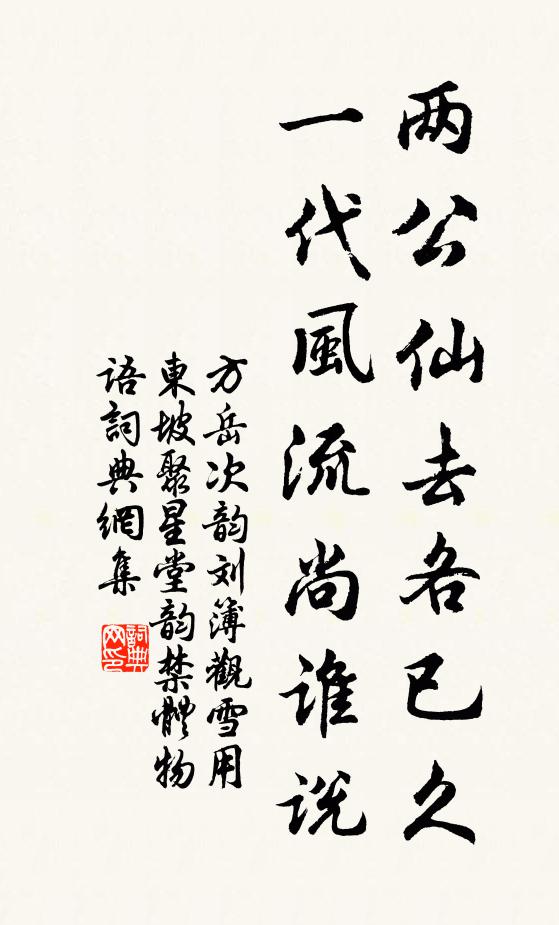 两公仙去各已久
一代風流尚谁说
方岳次韵刘簿觀雪用
東坡聚星堂韵禁體物
语詞典網集
詞典
网印